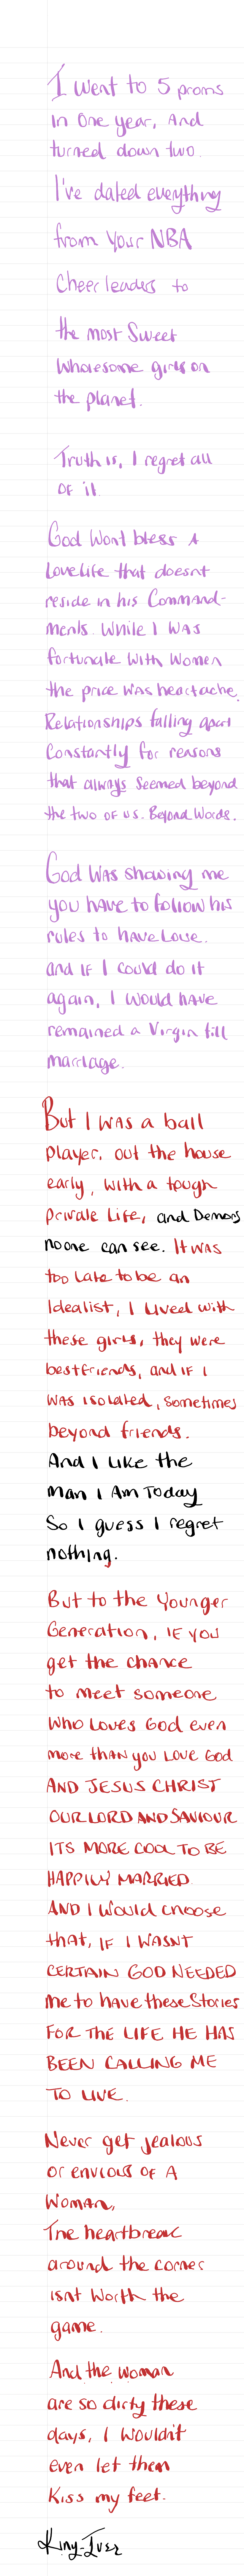 I went to 5 proms
in one year, And
turned down two.
I've dated everything
from your NBA
Cheerleaders to
the most sweet
wholesome girls on
the planet.
Truth is, I regret all
of it.
God wont bless A
Lovelife that doesnt
reside in his Command-
ments. While I was
fortunate with women
the price was heartache.
Relationships falling apart
Constantly for reasons
that always seemed beyond
the two of us. Beyond Words.
God was showing me
you have to follow his
rules to have Love.
and IF I could do it
again, I would have
remained a Virgin till
marriage.
But I was a ball
player, out the house
early, with a tough
private Life, and Demons
noone can see. It was
too late to be an
Idealist, I lived with
these girls, they were
bestfriends, and IF I
was isolated, sometimes
beyond friends.
And I Like the
Man I Am Today
So I guess I regret
nothing.
But to the Younger
Generation, IF you
get the chance
to meet someone
who loves God even
more than you Love God
AND JESUS CHRIST
OUR LORD AND SAVIOUR
ITS MORE COOL TO BE
HAPPILY MARRIED
AND I Would choose
that, IF I WASNT
CERTAIN GOD NEEDED
Me to have these Stories
FOR THE LIFE HE HAS
BEEN CALLING ME
TO LIVE.
Never get jealous
or envious of A
Woman,
The heartbreak
around the corner
isnt worth the
game.
And the woman
are so dirty these
days, I wouldn't
even let them
Kiss my feet.
King-Iver